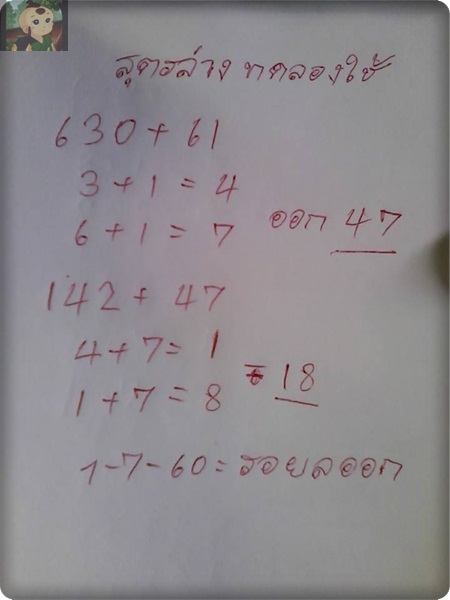 สูตรล่าง ทดลองใช้
630 + 61
3 + 1 = 4
6 + 1 = 7 ออก 47
142 + 47
4 + 7 = 1
1 + 7 = 8 = 18
1-7-60 = รอผลออก